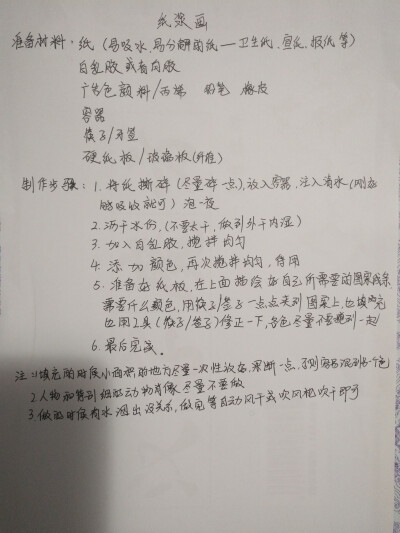 纸浆画
准备材料：纸（易吸水、易分解的纸——卫生纸、宣纸、报纸等）
白乳胶或者肉胶
广告色颜料/丙烯 铅笔 橡皮
容器
筷子/牙签
硬纸板/玻璃板
制作步骤：1. 将纸撕碎（尽量碎一点），放入容器，注入清水（刚好
能吸收就可）泡一夜
2. 沥干水份，（不要太干，做到外干内湿）
3. 加入白乳胶，搅拌均匀
4. 添加颜色，再次搅拌均匀，待用
5. 准备好纸板，在上面描绘好自己所需要的图案线条
需要什么颜色，用筷子/签子一点点夹到图案上，边填充
边用工具（筷子/签子）修正一下，各色尽量不要碰到一起
6. 最后完成。
注：1 填充的时候小面积的地方尽量一次性放好，果断一点，否则容易混到各个色
2 人物和特别细的动物肖像尽量不要做
3 做的时候有水溢出没关系，做完等自动风干或吹风机吹干即可